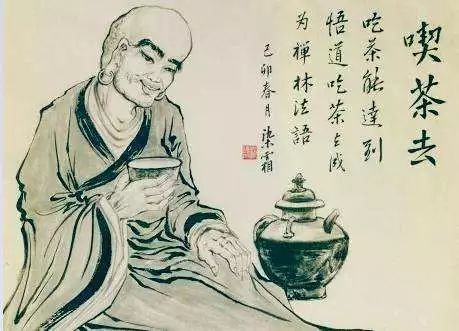 喫茶去
吃茶能達到
悟道吃茶占成
为禪林法語
己卯春月染霜